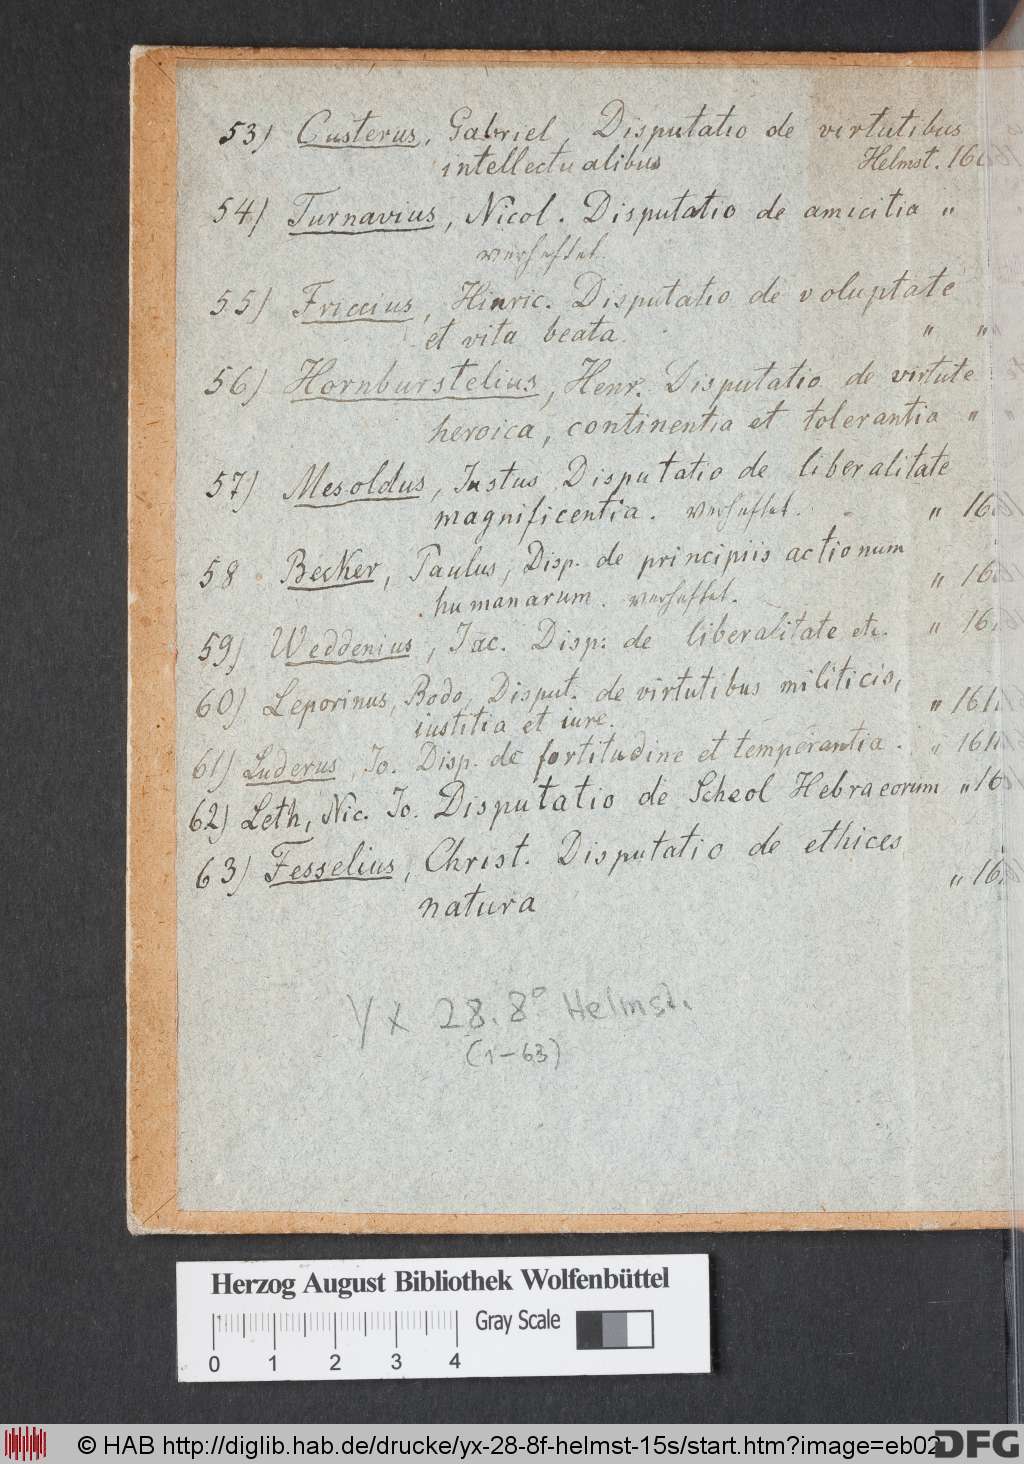 53) Custerus, Gabriel, Disputatio de virtutibus
intellectualibus Helmst. 160
54) Turnavius, Nicol. Disputatio de amicitia "
verheftet.
55) Friccius, Hinric. Disputatio de voluptate
et vita beata. " "
56) Hornburstelius, Henr. Disputatio de virtute
heroica, continentia et tolerantia "
57) Mesoldus, Justus Disputatio de liberalitate
magnificentia. verheftet. " 16
58 Becker, Paulus, Disp. de principiis actionum
humanarum. verheftet. " 16
59) Weddenius, Jac. Disp: de liberalitate etc. " 16
60) Leporinus, Bodo, Disput. de virtutibus militicis,
iustitia et iure. " 161
61) Luderus, Jo. Disp. de fortitudine et temperantia. " 161
62) Leth, Nic. Jo. Disputatio de Scheol Hebraeorum " 16
63) Fesselius, Christ. Disputatio de ethices
natura " 16
Yx 28.8° Helmst.
(1-63)
Herzog August Bibliothek Wolfenbüttel
Gray Scale
0 1 2 3 4
© HAB http://diglib.hab.de/drucke/yx-28-8f-helmst-15s/start.htm?image=eb02
DFG